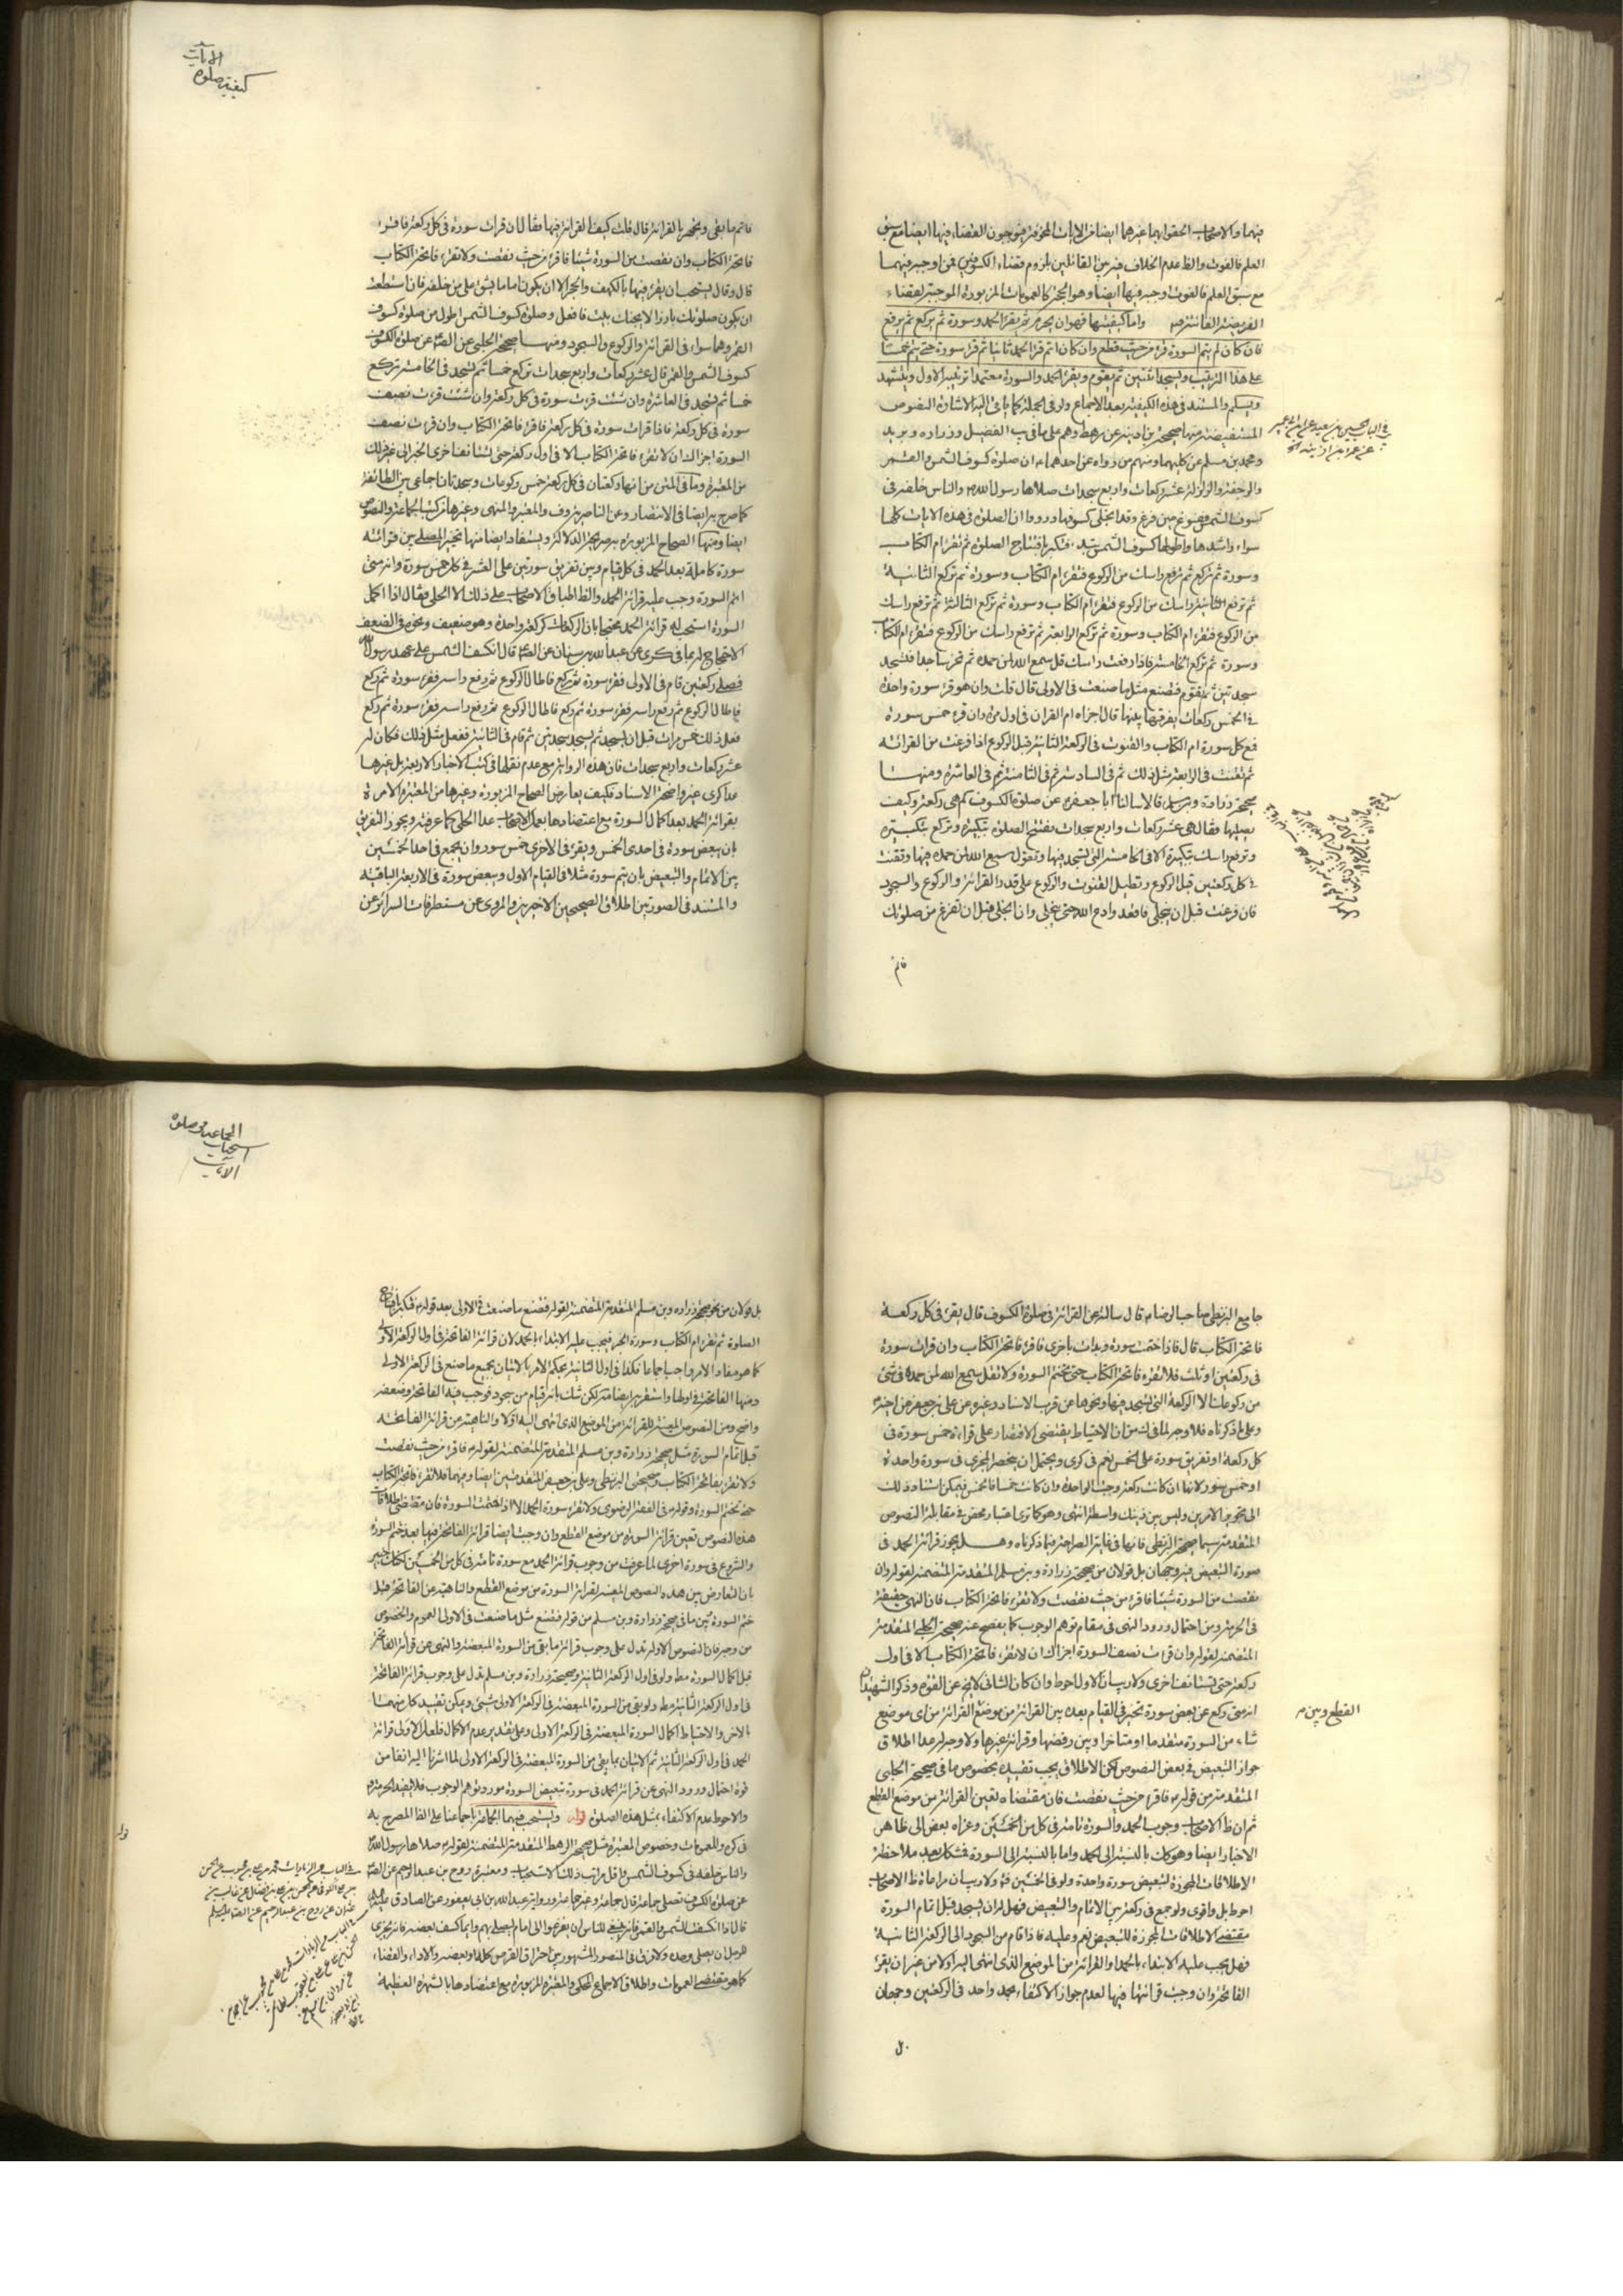 فيهما والاصحاب الحقوا بهما غيرهما ايضا من الايات المخوفة فيوجبون القضاء فيها ايضا مع سبق
العلم فالفوت والظ عدم الخلاف فيه بين القائلين بلزوم قضاء الكسوفين فمن اوجبه فيهما
مع سبق العلم فالفوت اوجبه فيها ايضا وهو الحجة كالعمومات المزبورة الموجبة لقضاء
الفريضة الفائتة واما كيفيتها فهو ان يحرم ثم يقرء الحمد وسورة ثم يركع ثم يرفع
فان كان لم يتم السورة قرء من حيث قطع وان كان اتم قرء الحمد ثانيا ثم قرء سورة حتى يتم خمسا
على هذا الترتيب ويسجد اثنتين ثم يقوم ويقرء الحمد والسورة معتمدا ترتيبه الاول ويتشهد
ويسلم والمستند في هذه الكيفية بعد الاجماع ولو في الجملة كما ياتي اليه الاشارة النصوص
المستفيضة منها صحيحة بن اذينة عن رهط وهم على ما في يب الفضيل وزراره وبريد
ومحمد بن مسلم عن كليهما ومنهم من رواه عن احدهما ان صلوة كسوف الشمس والقمر
والرجفة والزلزلة عشر ركعات واربع سجدات صلاها رسول الله والناس خلفه في
كسوف الشمس ففرغ حين فرغ وقد انجلى كسوفها ورووا ان الصلوة في هذه الايات كلها
سواء واشدها واطولها كسوف الشمس تبدء فتكبر بافتتاح الصلوة ثم تقرء ام الكتاب
وسورة ثم تركع ثم ترفع راسك من الركوع فتقرء ام الكتاب وسورة ثم تركع الثانية
ثم ترفع راسك من الركوع فتقرء ام الكتاب وسورة ثم تركع الثالثة ثم ترفع راسك
من الركوع فتقرء ام الكتاب وسورة ثم تركع الرابعة ثم ترفع راسك من الركوع فتقرء ام الكتاب
وسورة ثم تركع الخامسة فاذا رفعت راسك قل سمع الله لمن حمده ثم تخر ساجدا فتسجد
سجدتين ثم تقوم فتصنع مثل ما صنعت في الاولى قال قلت وان هو قرء سورة واحدة
في الخمس ركعات يفرقها بينها قال اجزاه ام القران في اول مرة وان قرء خمس سورة
فمع كل سورة ام الكتاب والقنوت في الركعة الثانية قبل الركوع اذا فرغت من القرائة
ثم تقنت في الرابعة مثل ذلك ثم في السادسة ثم في الثامنة ثم في العاشرة ومنها
صحيحة زرارة وبن مسلم قالا سالنا ابا جعفر عن صلوة الكسوف كم هي ركعة وكيف
يصليها فقال هي عشر ركعات واربع سجدات تفتتح الصلوة بتكبيرة وتركع بتكبيرة
وترفع راسك بتكبيرة الا في الخامسة التي تسجد فيها وتقول سمع الله لمن حمده فيها وتقنت
في كل ركعتين قبل الركوع وتطيل القنوت والركوع على قدر القرائة والركوع والسجود
فان فرغت قبل ان ينجلي فاقعد وادع الله حتى ينجلي وان انجلى قبل ان تفرغ من صلوتك
فاتم
الايات
كيفية صلوة
فاتم ما بقي وتجهر بالقرائة قال قلت كيف القرائة فيها فقال ان قرات سورة في كل ركعة فاقرء
فاتحة الكتاب وان نقصت من السورة شيئا فاقرء من حيث نقصت ولا تقرء فاتحة الكتاب
قال وقال يستحب ان يقرء فيها بالكهف والحجر الا ان يكون اماما يشق على من خلفه فان استطعت
ان يكون صلوتك بارزا لا يجنك بيت فافعل وصلوة كسوف الشمس اطول من صلوة كسوف
القمر وهما سواء في القرائة والركوع والسجود ومنها صحيحة الحلبي عن الص عن صلوة الكسوف
كسوف الشمس والقمر قال عشر ركعات واربع سجدات تركع خمسا ثم تسجد في الخامسة ثم تركع
خمسا ثم تسجد في العاشرة وان شئت قرات سورة في كل ركعة وان شئت قرات نصف
سورة في كل ركعة فاذا قرات سورة في كل ركعة فاقرء فاتحة الكتاب وان قرات نصف
السورة اجزاك ان لا تقرء فاتحة الكتاب الا في اول ركعة حتى تستانف اخرى الخبر الى غير ذلك
من المعتبرة وما في المتن من انها ركعتان في كل ركعة خمس ركوعات وسجدتان اجماعي بين الطائفة
كما صرح به ايضا في الانتصار وعن الناصرية وف والمعتبر والمنتهى وغيرها من كتب الجماعة والنصوص
ايضا ومنها الصحاح المزبورة به صريحة الدلالة ويستفاد ايضا منها تخير المصلي بين قرائة
سورة كاملة بعد الحمد في كل قيام وبين تفريق سورتين على العشر في كل خمس سورة وانه متى
اتم السورة وجب عليه قرائة الحمد والظ اطباق الاصحاب على ذلك الا الحلي فقال اذا اكمل
السورة استحب له قرائة الحمد محتجا بان الركعات كركعة واحدة وهو ضعيف ونحوه في الضعف
الاحتجاج له بما في كرى عن عبد الله بن سنان عن الص قال انكسف الشمس على عهد رسول الله
فصلى ركعتين قام في الاولى فقرء سورة ثم ركع فاطال الركوع ثم رفع راسه فقرء سورة ثم ركع
فاطال الركوع ثم رفع راسه فقرء سورة ثم ركع فاطال الركوع ثم رفع راسه فقرء سورة ثم ركع
فعل ذلك خمس مرات قبل ان يسجد ثم يسجد سجدتين ثم قام في الثانية ففعل مثل ذلك فكان له
عشر ركعات واربع سجدات فان هذه الرواية مع عدم نقلها في كتب الاخبار الاربعة بل غيرها
عدا كرى غير واضحة الاسناد فكيف يعارض الصحاح المزبورة وغيرها من المعتبرة الامرة
بقرائة الحمد بعد اكمال السورة مع اعتضادها بعمل الاصحاب عدا الحلي كما عرفته ويجوز التفريق
بان يبعض سورة في احدى الخمس ويقرء في الاخرى خمس سور وان يجمع في احد الخمسين
بين الاتمام والتبعيض بان يتم سورة مثلا في القيام الاول ويبعض سورة في الاربعة الباقية
والمستند في الصورتين اطلاق الصحيحين الاخيرين والمروي عن مستطرفات السرائر عن
جامع البزنطي صاحب الرضا قال سالته عن القرائة في صلوة الكسوف قال يقرء في كل ركعة
فاتحة الكتاب قال فاذا ختمت سورة وبدات باخرى فاقرء فاتحة الكتاب وان قرات سورة
في ركعتين او ثلث فلا تقرء فاتحة الكتاب حتى تختم السورة ولا تقل سمع الله لمن حمده في شئ
من ركوعات الا الركعة التي تسجد فيها ونحوها عن قرب الاسناد وغيره عن علي بن جعفر عن اخيه
وعلى ما ذكرناه فلا وجه لما في ك من ان الاحتياط يقتضي الاقتصار على قراءة خمس سورة في
كل ركعة او تفريق سورة على الخمس نعم في كرى ويحتمل ان ينحصر المجزي في سورة واحدة
او خمس سور لانها ان كانت ركعة وجبت الواحدة وان كانت خمسا فالخمس فيمكن استناد ذلك
الى تجويز الامرين وليس بين ذينك واسطة انتهى وهو كما ترى اعتبار محض في مقابلة النصوص
المتقدمة سيما صحيحة البزنطي فانها في غاية الصراحة فيما ذكرناه وهل يجوز قرائة الحمد في
صورة التبعيض فيه وجهان بل قولان من صحيحة زرارة وبن مسلم المتقدمة المتضمنة لقوله وان
نقصت من السورة شيئا فاقرء من حيث نقصت ولا تقرء فاتحة الكتاب فان النهي حقيقة
في الحرمة ومن احتمال ورود النهي في مقام توهم الوجوب كما يفصح عنه صحيحة الحلبي المتقدمة
المتضمنة لقوله وان قرات نصف السورة اجزاك ان لا تقرء فاتحة الكتاب الا في اول
ركعة حتى تستانف اخرى ولا ريب ان الاول احوط وان كان الثاني لا يخ عن القوة وذكر الشهيدان
انه متى ركع عن بعض سورة تخير في القيام بعده بين القرائة من موضع القرائة من اى موضع
شاء من السورة متقدما او متاخرا وبين رفضها وقرائة غيرها ولا وجه له عدا اطلاق
جواز التبعيض في بعض النصوص لكن الاطلاق يجب تقييده بخصوص ما في صحيحة الحلبي
المتقدمة من قوله فاقرء من حيث نقصت فان مقتضاه تعين القرائة من موضع القطع
ثم ان ظ الاصحاب وجوب الحمد والسورة تامة في كل من الخمسين وعزاه بعض الى ظاهر
الاخبار ايضا وهو كك بالنسبة الى الحمد واما بالنسبة الى السورة فمشكل بعد ملاحظة
الاطلاقات المجوزة لتبعيض سورة واحدة ولو في الخمسين ولا ريب ان مراعاة ظ الاصحاب
احوط بل واقوى ولو جمع في ركعة بين الاتمام والتبعيض فهل له ان يسجد قبل اتمام السورة
مقتضى الاطلاقات المجوزة للتبعيض نعم وعليه فاذا قام من السجود الى الركعة الثانية
فهل يجب عليه الابتداء بالحمد او القرائة من الموضع الذي انتهى اليه اولا من غير ان يقرء
الفاتحة وان وجبت قرائتها فيها لعدم جواز الاكتفاء بحمد واحد في الركعتين وجهان
القطع وبين م
بل
الجماعة في صلوة
استحباب
الايات
بل قولان من نحو صحيحة زراره وبن مسلم المتقدمة المتضمنة لقوله فتصنع ما صنعت في الاولى بعد قوله فتكبر بافتتاح
الصلوة ثم تقرء ام الكتاب وسورة الخبر فيجب عليه الابتداء بالحمد لان قرائة الفاتحة في اول الركعة الاولى
كما هو مفاد الامر واجب اجماعا فكذا في اول الثانية بحكم الامر بالاتيان بجميع ما صنع في الركعة الاولى
ومنها الفاتحة في اولها واستقربه ايضا
واضح ومن النصوص المعينة للقرائة من الموضع الذي انتهى اليه اولا والناهية عن قرائة الفاتحة
قبل اتمام السورة مثل صحيحة زرارة وبن مسلم المتقدمة المتضمنة لقوله فاقرء من حيث نقصت
ولا تقرء فاتحة الكتاب وصحيحتي البزنطي وعلي بن جعفر المتقدمتين ايضا وفيهما فلا تقرء فاتحة الكتاب
حتى تختم السورة وقوله في الفقه الرضوي ولا تقرء سورة الحمد الا اذا ختمت السورة فان مقتضى اطلاقات
هذه النصوص تعين قرائة السورة من موضع القطع وان وجبت ايضا قرائة الفاتحة فيها بعد ختم السورة
والشروع في سورة اخرى لما عرفت من وجوب قرائة الحمد مع سورة تامة في كل من الخمسين لكنك خبير
بان التعارض بين هذه النصوص المعينة لقرائة السورة من موضع القطع والناهية عن الفاتحة قبل
ختم السورة وبين ما في صحيحة زرارة وبن مسلم من قوله فتصنع مثل ما صنعت في الاولى العموم والخصوص
من وجه فان النصوص الاوله تدل على وجوب قرائة ما بقى من السورة المبعضة والنهي عن قرائة الفاتحة
قبل اكمال السورة مط ولو في اول الركعة الثانية وصحيحة زرارة وبن مسلم تدل على وجوب قرائة الفاتحة
في اول الركعة الثانية مط ولو بقى من السورة المبعضة في الركعة الاولى شيئ ويمكن تقييد كل منهما
بالاخر والاحتياط اكمال السورة المبعضة في الركعة الاولى وعلى تقدير عدم الاكمال فلعل الاولى قرائة
الحمد في اول الركعة الثانية ثم الاتيان بما بقى من السورة المبعضة في الركعة الاولى لما اشرنا اليه انفا من
قوة احتمال ورود النهي عن قرائة الحمد في سورة تبعيض السورة مورد توهم الوجوب فلا يفيد الحرمة
والاحوط عدم الاكتفاء بمثل هذه الصلوة قوله ويستحب فيها الجماعة باجماعنا على الظ المصرح به
في كرى وللعمومات وخصوص المعتبرة مثل صحيحة الرهط المتقدمة المتضمنة لقوله صلاها رسول الله
والناس خلفه في كسوف الشمس واقل مراتب ذلك الاستحباب ومعتبرة روح بن عبد الرحيم عن الص
عن صلوة الكسوف تصلى جماعة قال جماعة وغير جماعة ورواية عبد الله بن ابي يعفور عن الصادق عليه
قال اذا انكسف الشمس والقمر فانه ينبغي للناس ان يفزعوا الى امام يصلي بهم وايما كسف بعضه فانه يجزي
الرجل ان يصلي وحده ولا فرق في المنصور المشهور بين احتراق القرص كله او بعضه والاداء والقضاء
كما هو مقتضى العمومات واطلاق الاجماع المحكي والمعتبرة المزبورة مع اعتضادها بالشهرة العظيمة